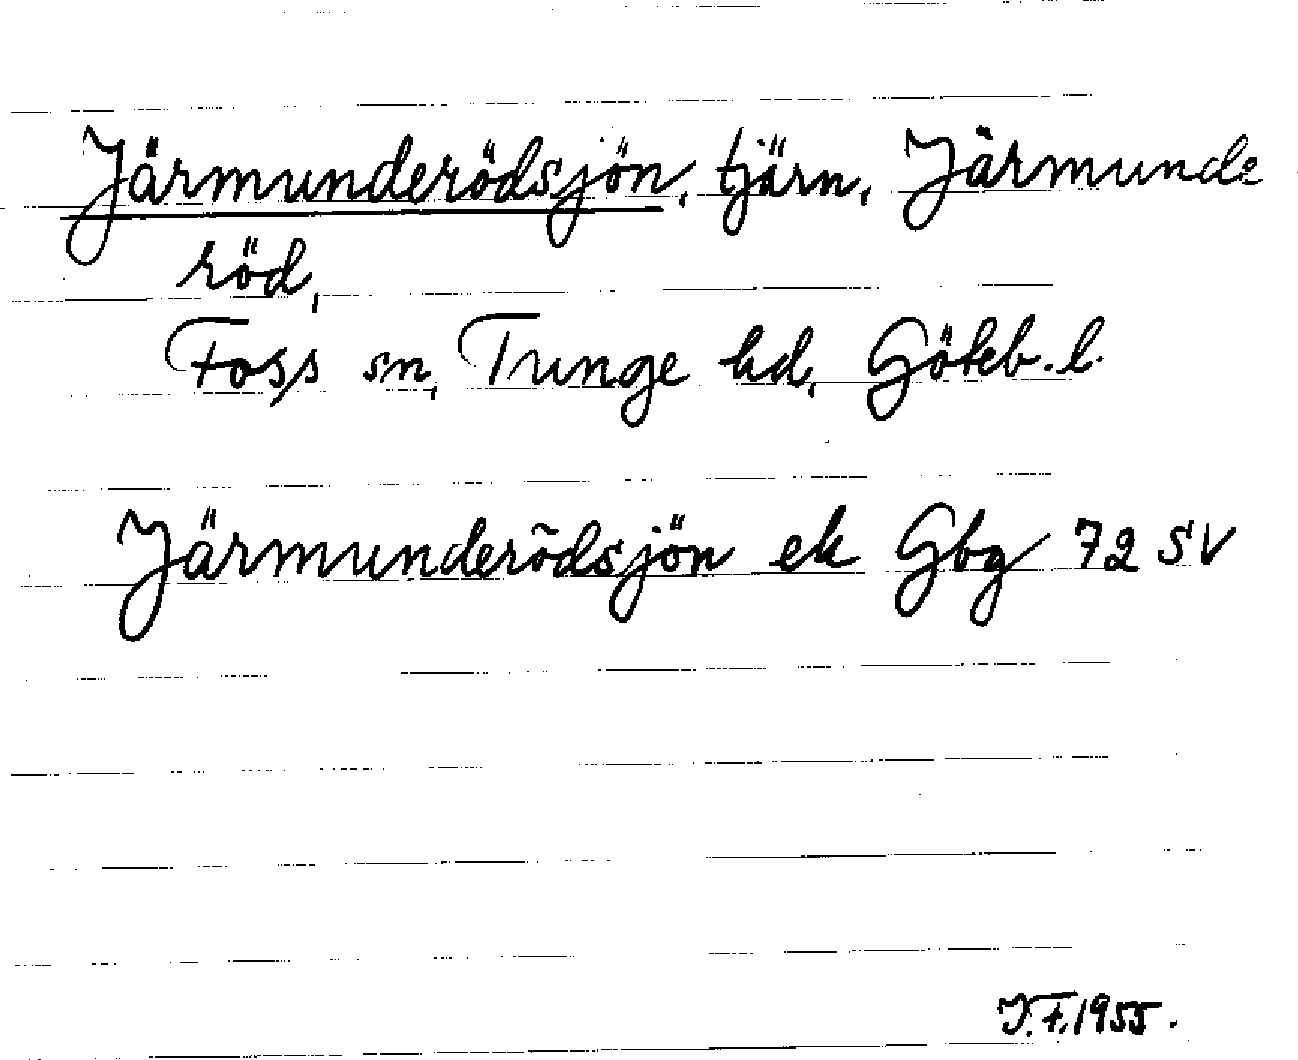 Järmunderödsjön, tjärn, Järmunde
röd,
Foss sn, Tunge hd, Göteb. l.
Järmunderödsjön ek Gbg 72 SV
J.F. 1955.